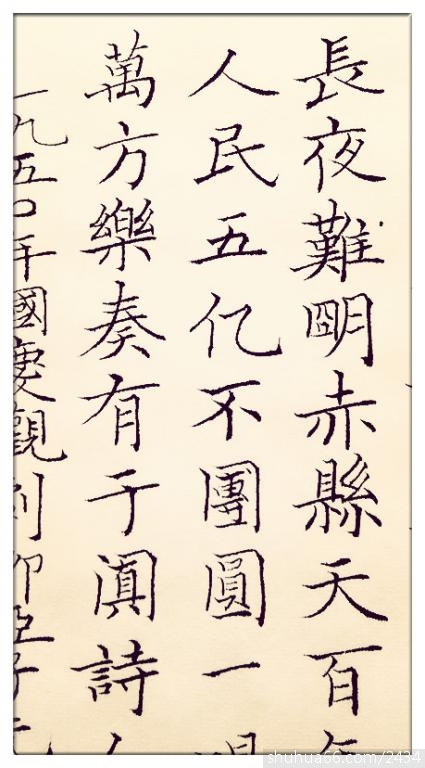 長夜難朙赤縣天百年
人民五亿不團圓一
萬方樂奏有于闐詩人
一九五〇年國慶觀